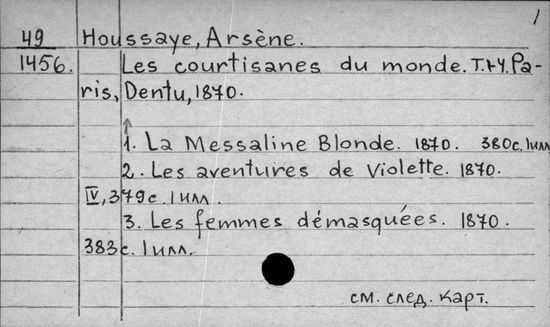 1
49 Houssaye, Arsène.
1456. Les courtisanes du monde. Т.1-4. Pa-
ris, Dentu, 1870.
1. La Messaline Blonde. 1870. 380с. 1 илл
2. Les aventures de Violette. 1870.
IV, 379с. 1 илл.
3. Les femmes démasquées. 1870.
383с. 1 илл.
см. след. карт.